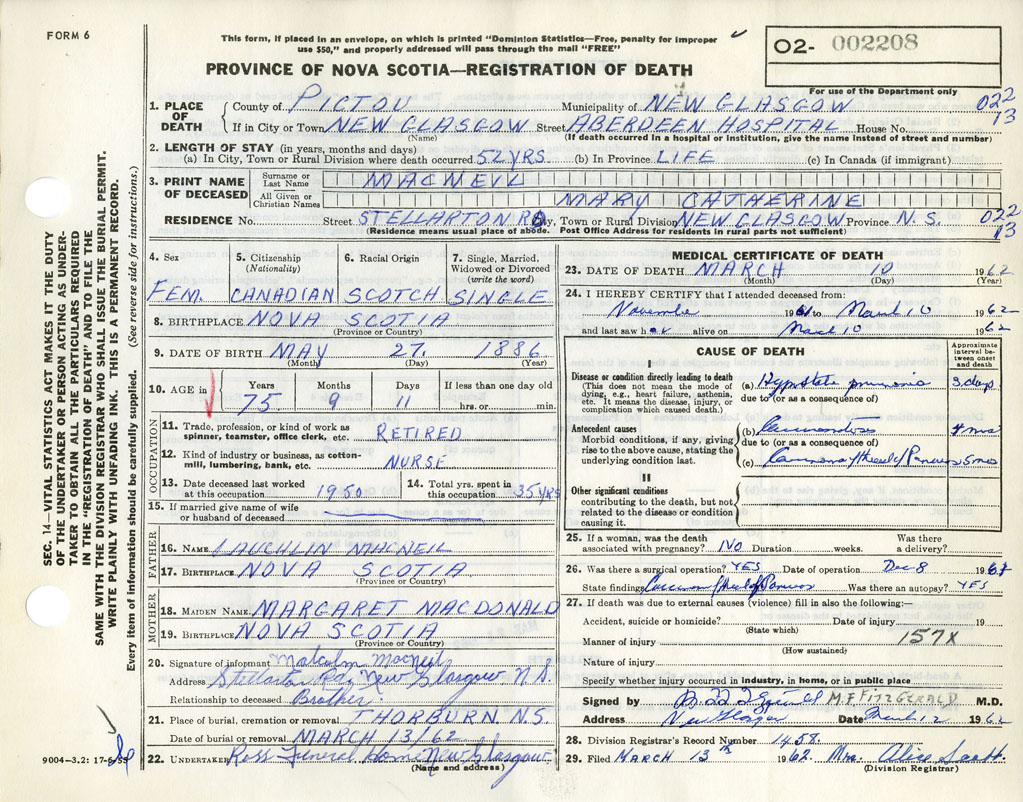 FORM 6
This form, if placed in an envelope, on which is printed "Dominion Statistics—Free, penalty for improper
use $50," and properly addressed will pass through the mail "FREE"
02- 002208
PROVINCE OF NOVA SCOTIA—REGISTRATION OF DEATH
For use of the Department only
1. PLACE OF DEATH County of PICTOU Municipality of NEW GLASGOW 022
If in City or Town NEW GLASGOW Street ABERDEEN HOSPITAL House No. 13
(Name) (If death occurred in a hospital or institution, give the name instead of street and number)
2. LENGTH OF STAY (in years, months and days)
(a) In City, Town or Rural Division where death occurred 52 YRS (b) In Province LIFE (c) In Canada (if immigrant)
3. PRINT NAME OF DECEASED Surname or Last Name MACNEIL
All Given or Christian Names MARY CATHERINE
RESIDENCE No. Street STELLARTON RD City, Town or Rural Division NEW GLASGOW Province N.S. 022
(Residence means usual place of abode. Post Office Address for residents in rural parts not sufficient) 13
4. Sex FEM.
5. Citizenship (Nationality) CANADIAN
6. Racial Origin SCOTCH
7. Single, Married, Widowed or Divorced (write the word) SINGLE
8. BIRTHPLACE NOVA SCOTIA
(Province or Country)
9. DATE OF BIRTH MAY 27. 1886
(Month) (Day) (Year)
10. AGE in Years Months Days If less than one day old
75 9 11 hrs. or min.
OCCUPATION
11. Trade, profession, or kind of work as spinner, teamster, office clerk, etc. RETIRED
12. Kind of industry or business, as cotton-mill, lumbering, bank, etc. NURSE
13. Date deceased last worked at this occupation 1950
14. Total yrs. spent in this occupation 35 YRS
15. If married give name of wife or husband of deceased
FATHER
16. NAME LAUCHLIN MACNEIL
17. BIRTHPLACE NOVA SCOTIA
(Province or Country)
MOTHER
18. MAIDEN NAME MARGARET MACDONALD
19. BIRTHPLACE NOVA SCOTIA
(Province or Country)
20. Signature of informant Malcolm Macneil
Address Stellarton Rd, New Glasgow N.S.
Relationship to deceased Brother.
21. Place of burial, cremation or removal THORBURN N.S.
Date of burial or removal MARCH 13/62
22. UNDERTAKER Ross Funeral Home New Glasgow
(Name and address)
MEDICAL CERTIFICATE OF DEATH
23. DATE OF DEATH MARCH 10 1962
(Month) (Day) (Year)
24. I HEREBY CERTIFY that I attended deceased from:
November 1961 to March 10 1962
and last saw her alive on March 10 1962
CAUSE OF DEATH
Approximate interval between onset and death
I
Disease or condition directly leading to death
(This does not mean the mode of dying, e.g., heart failure, asthenia, etc. It means the disease, injury, or complication which caused death.)
(a) Hypostatic pneumonia 3 days
due to (or as a consequence of)
Antecedent causes
Morbid conditions, if any, giving rise to the above cause, stating the underlying condition last.
(b)
due to (or as a consequence of)
(c) Carcinoma of head of Pancreas 5 mos
II
Other significant conditions
contributing to the death, but not related to the disease or condition causing it.
25. If a woman, was the death associated with pregnancy? NO Duration weeks. Was there a delivery?
26. Was there a surgical operation? YES Date of operation Dec 8 1961
State findings Carcinoma of head of Pancreas Was there an autopsy? YES
27. If death was due to external causes (violence) fill in also the following:—
Accident, suicide or homicide? Date of injury 19
(State which)
Manner of injury 157X
(How sustained)
Nature of injury
Specify whether injury occurred in industry, in home, or in public place
Signed by M.F. FITZGERALD M.D.
Address New Glasgow Date March 12 1962
28. Division Registrar's Record Number 1458.
29. Filed MARCH 13th 1962. Mrs. Alice Scott.
(Division Registrar)
SEC. 14—VITAL STATISTICS ACT MAKES IT THE DUTY
OF THE UNDERTAKER OR PERSON ACTING AS UNDER-
TAKER TO OBTAIN ALL THE PARTICULARS REQUIRED
IN THE "REGISTRATION OF DEATH" AND TO FILE THE
SAME WITH THE DIVISION REGISTRAR WHO SHALL ISSUE THE BURIAL PERMIT.
WRITE PLAINLY WITH UNFADING INK. THIS IS A PERMANENT RECORD.
Every item of information should be carefully supplied. (See reverse side for instructions.)